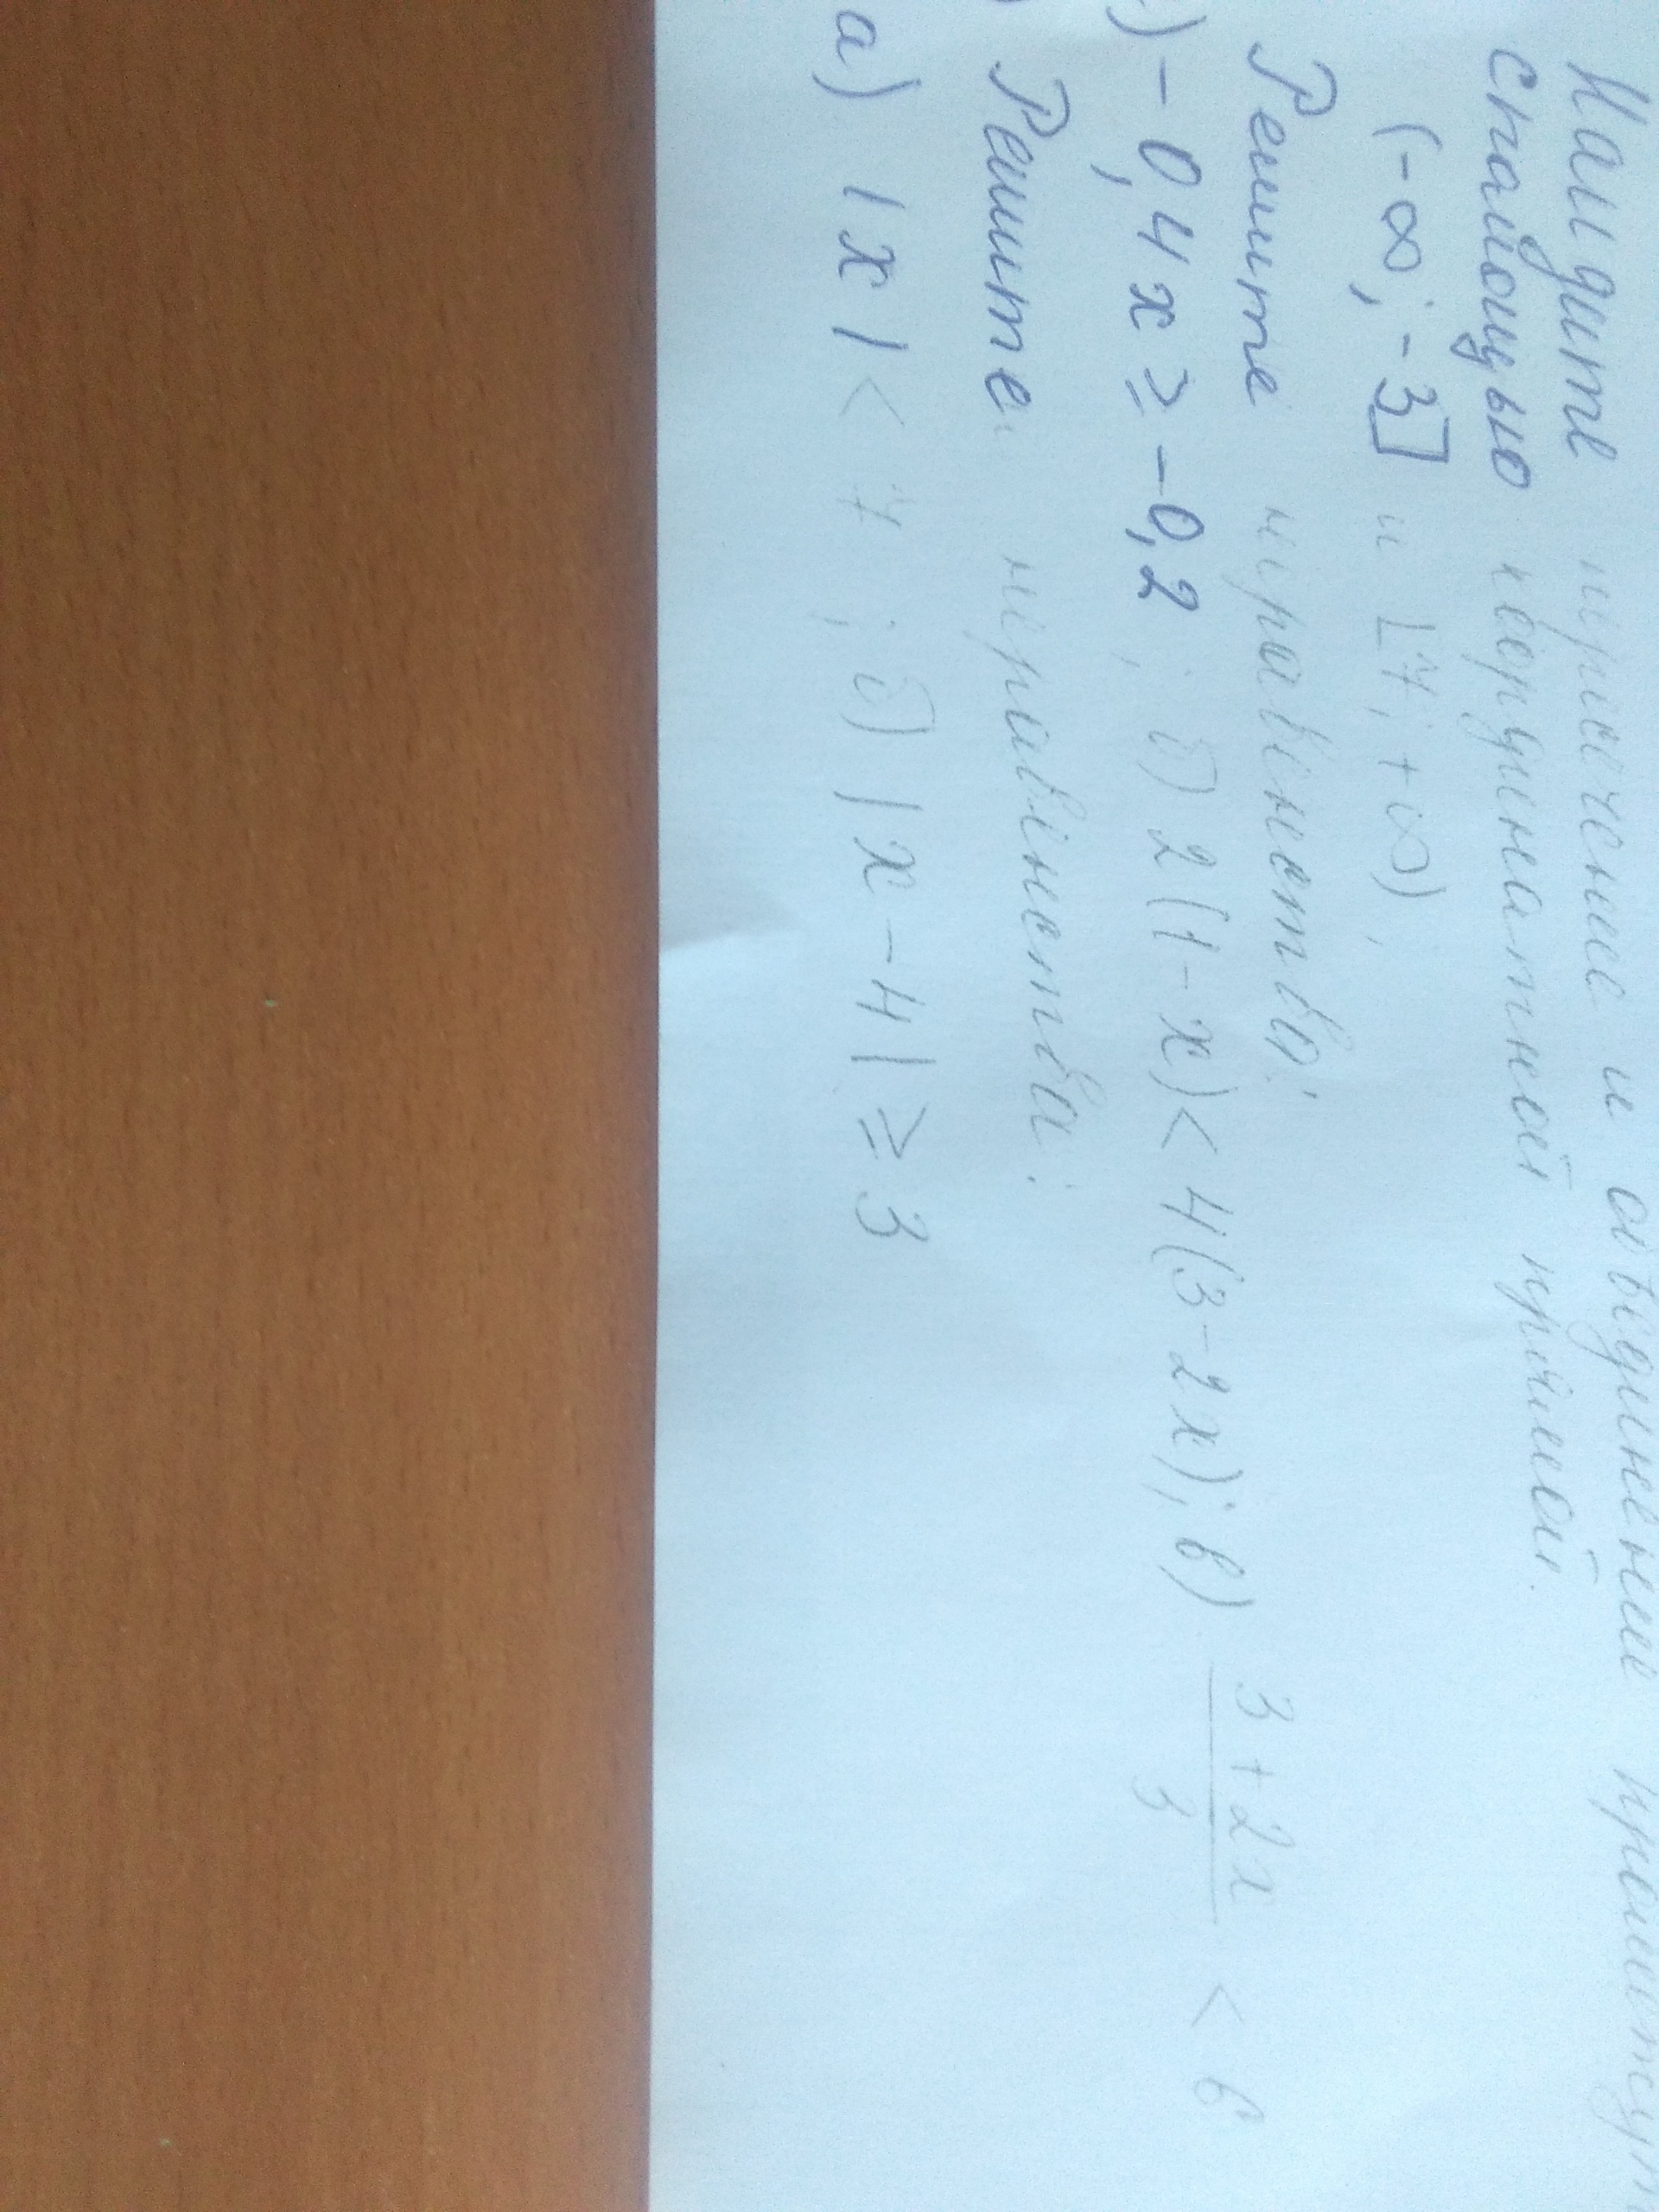 Найдите пересечение и объединение промежут
с помощью координатной прямой.
(-∞; -3] и [7; +∞)
Решите неравенства:
) -0,4x ≥ -0,2; б) 2(1-x) < 4(3-2x); в) 3+2x/3 < 6
) Решите неравенства:
а) |x| < 7; б) |x-4| ≥ 3